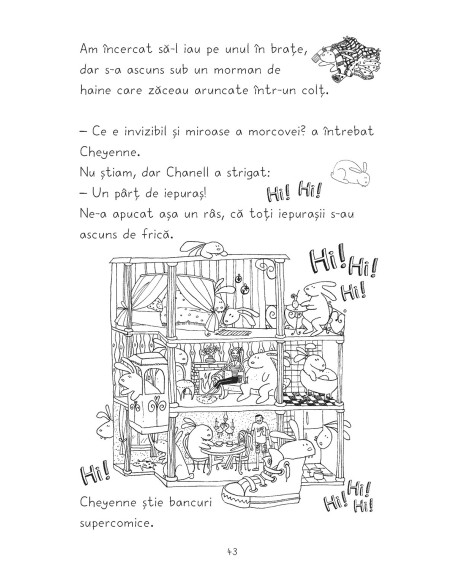 Am încercat să-l iau pe unul în brațe,
dar s-a ascuns sub un morman de
haine care zăceau aruncate într-un colț.
– Ce e invizibil și miroase a morcovei? a întrebat
Cheyenne.
Nu știam, dar Chanell a strigat:
– Un pârț de iepuraș!
Hi! Hi!
Ne-a apucat așa un râs, că toți iepurașii s-au
ascuns de frică.
Hi! Hi!
Hi!
Hi!
Cheyenne știe bancuri
supercomice.
Hi! Hi!
Hi!
43